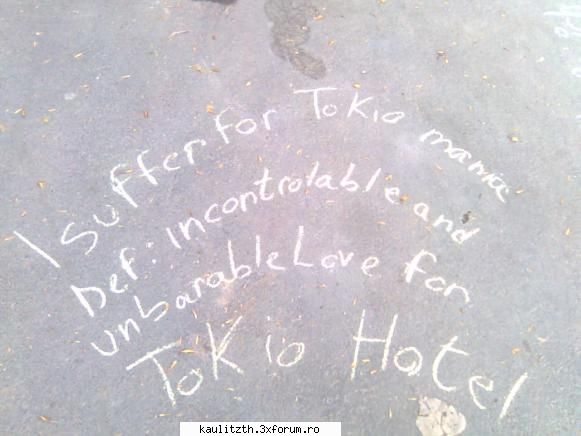 I suffer for Tokio mania
Def: incontrolable and
unbarable Love for
Tokio Hotel
kaulitzth.3xforum.ro